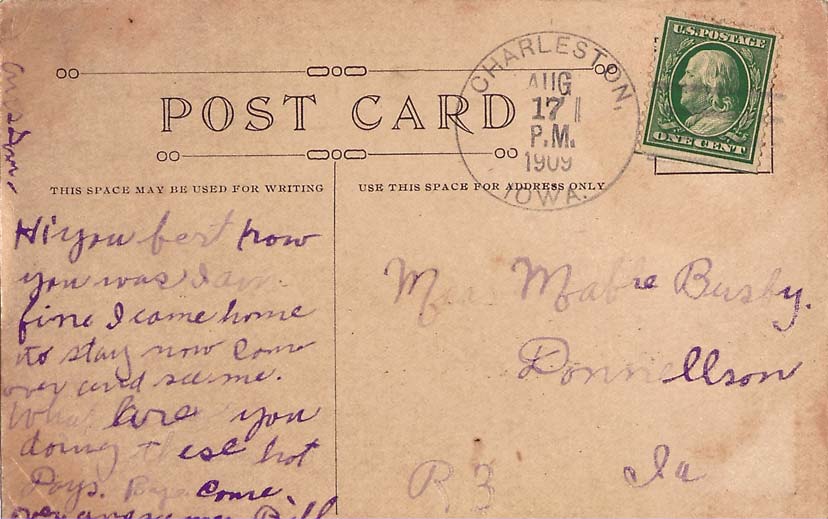 U.S. POSTAGE
ONE CENT
CHARLESTON,
AUG
17
P.M.
1909
IOWA.
POST CARD
THIS SPACE MAY BE USED FOR WRITING
USE THIS SPACE FOR ADDRESS ONLY
Hi you how
you was I am
fine I came home
to stay now Come
over and see me.
What are you
doing these hot
Days. Bye come
over see Bill
Mable Busby.
Donnellson
R 3 Ia